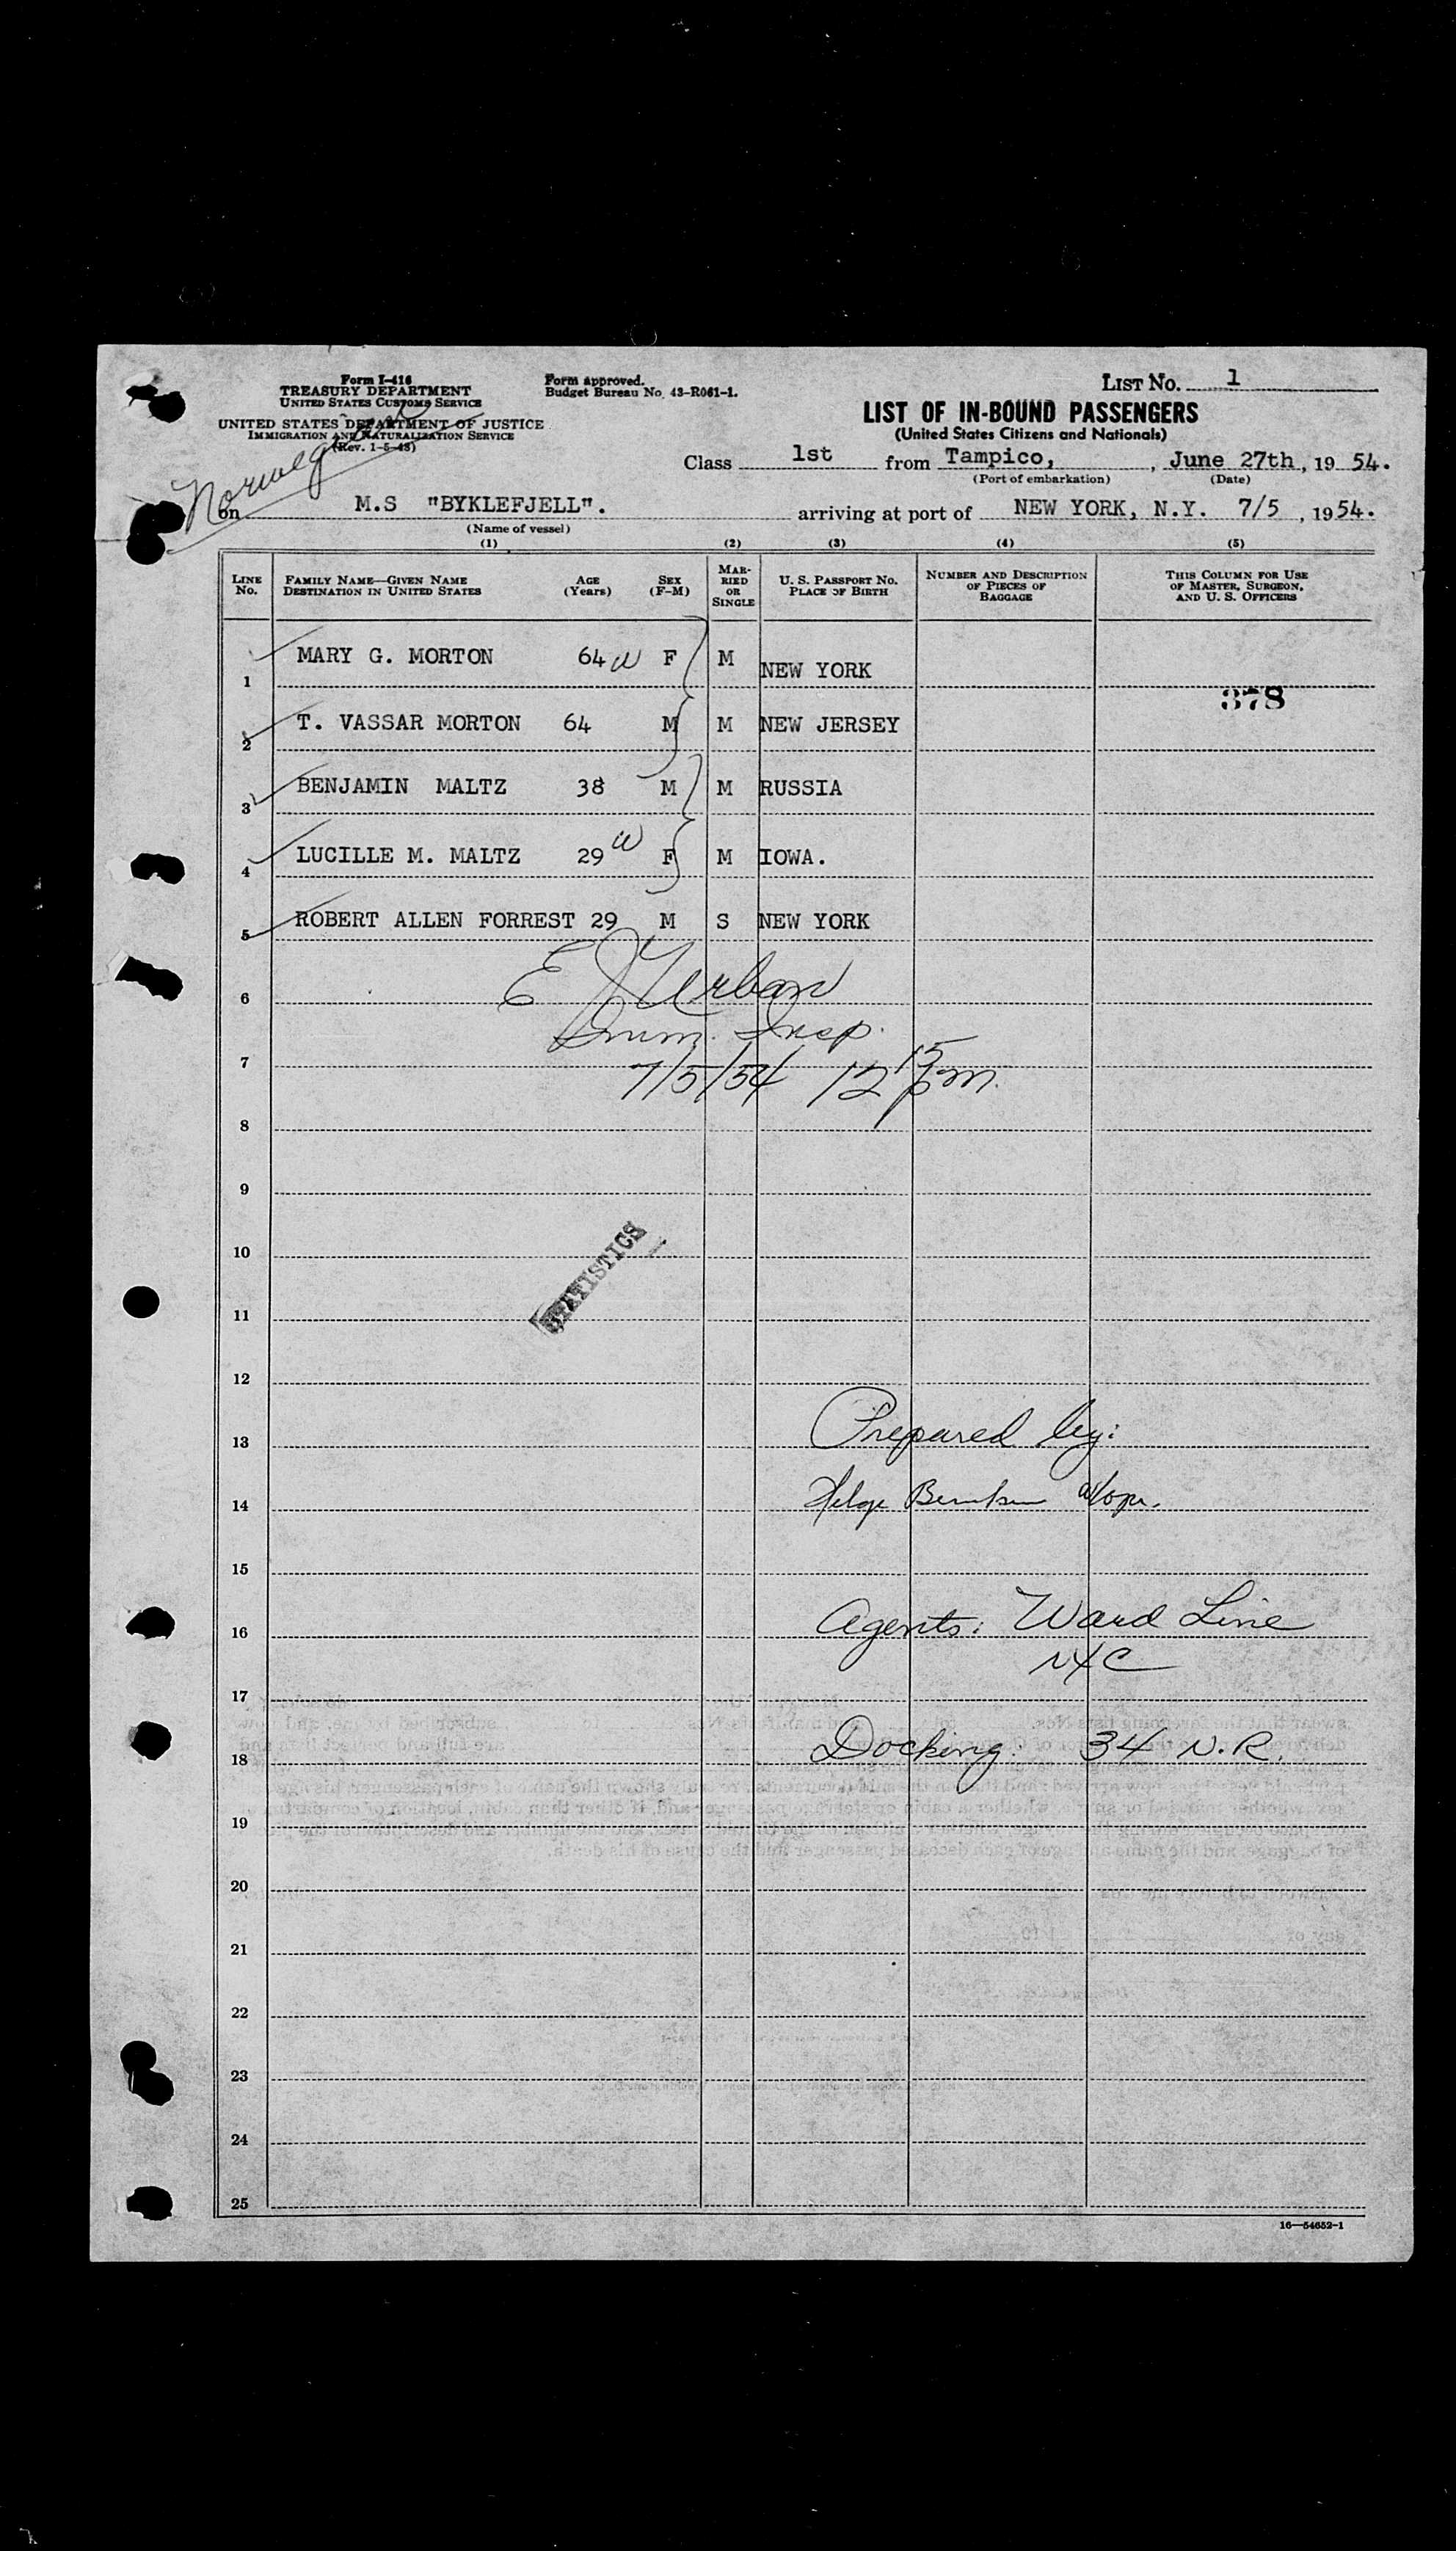 Form I-416
TREASURY DEPARTMENT
UNITED STATES CUSTOMS SERVICE
UNITED STATES DEPARTMENT OF JUSTICE
IMMIGRATION AND NATURALIZATION SERVICE
(Rev. 1-5-43)
Form approved.
Budget Bureau No. 43-R061-1.
LIST NO. 1
LIST OF IN-BOUND PASSENGERS
(United States Citizens and Nationals)
Class 1st from Tampico, , June 27th, 1954.
(Port of embarkation) (Date)
on M.S "BYKLEFJELL". arriving at port of NEW YORK, N.Y. 7/5, 1954.
(Name of vessel)
(1) (2) (3) (4) (5)
LINE NO. FAMILY NAME—GIVEN NAME DESTINATION IN UNITED STATES AGE (Years) SEX (F-M) MARRIED OR SINGLE U. S. PASSPORT NO. PLACE OF BIRTH NUMBER AND DESCRIPTION OF PIECES OF BAGGAGE THIS COLUMN FOR USE OF MASTER, SURGEON, AND U. S. OFFICERS
1 MARY G. MORTON 64 W F M NEW YORK
378
2 T. VASSAR MORTON 64 M M NEW JERSEY
3 BENJAMIN MALTZ 38 M M RUSSIA
4 LUCILLE M. MALTZ 29 W F M IOWA.
5 ROBERT ALLEN FORREST 29 M S NEW YORK
6 E J Urban
Imm. Insp.
7 7/5/54 12 15 pm.
8
9
10
STATISTICS
11
12
13 Prepared by:
14 Helge
15
16 Agents: Ward Line
NYC
17
18 Docking: 34 N.R.
19
20
21
22
23
24
25
16—54652-1